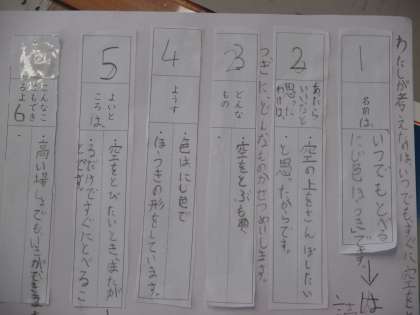 わたしが考えたのは、いつでもすぐに空を
1
名前は、
いつでもとべる
にじ色ほうきです。
は
2
あたら
いいなと
思った
わけは、
・空の上をさんぽしたい
と思ったからです。
つぎに、どんなものかせつめいします。
3
どんな
もの
・空をとぶもの
4
ようす
・色はにじ色で
ほうきの形をしています。
5
よいと
ころは、
・空をとびたいときまたが
るだけですぐにとべるこ
とです。
6
こんなこ
ともでき
るよ
・高い場しょでも